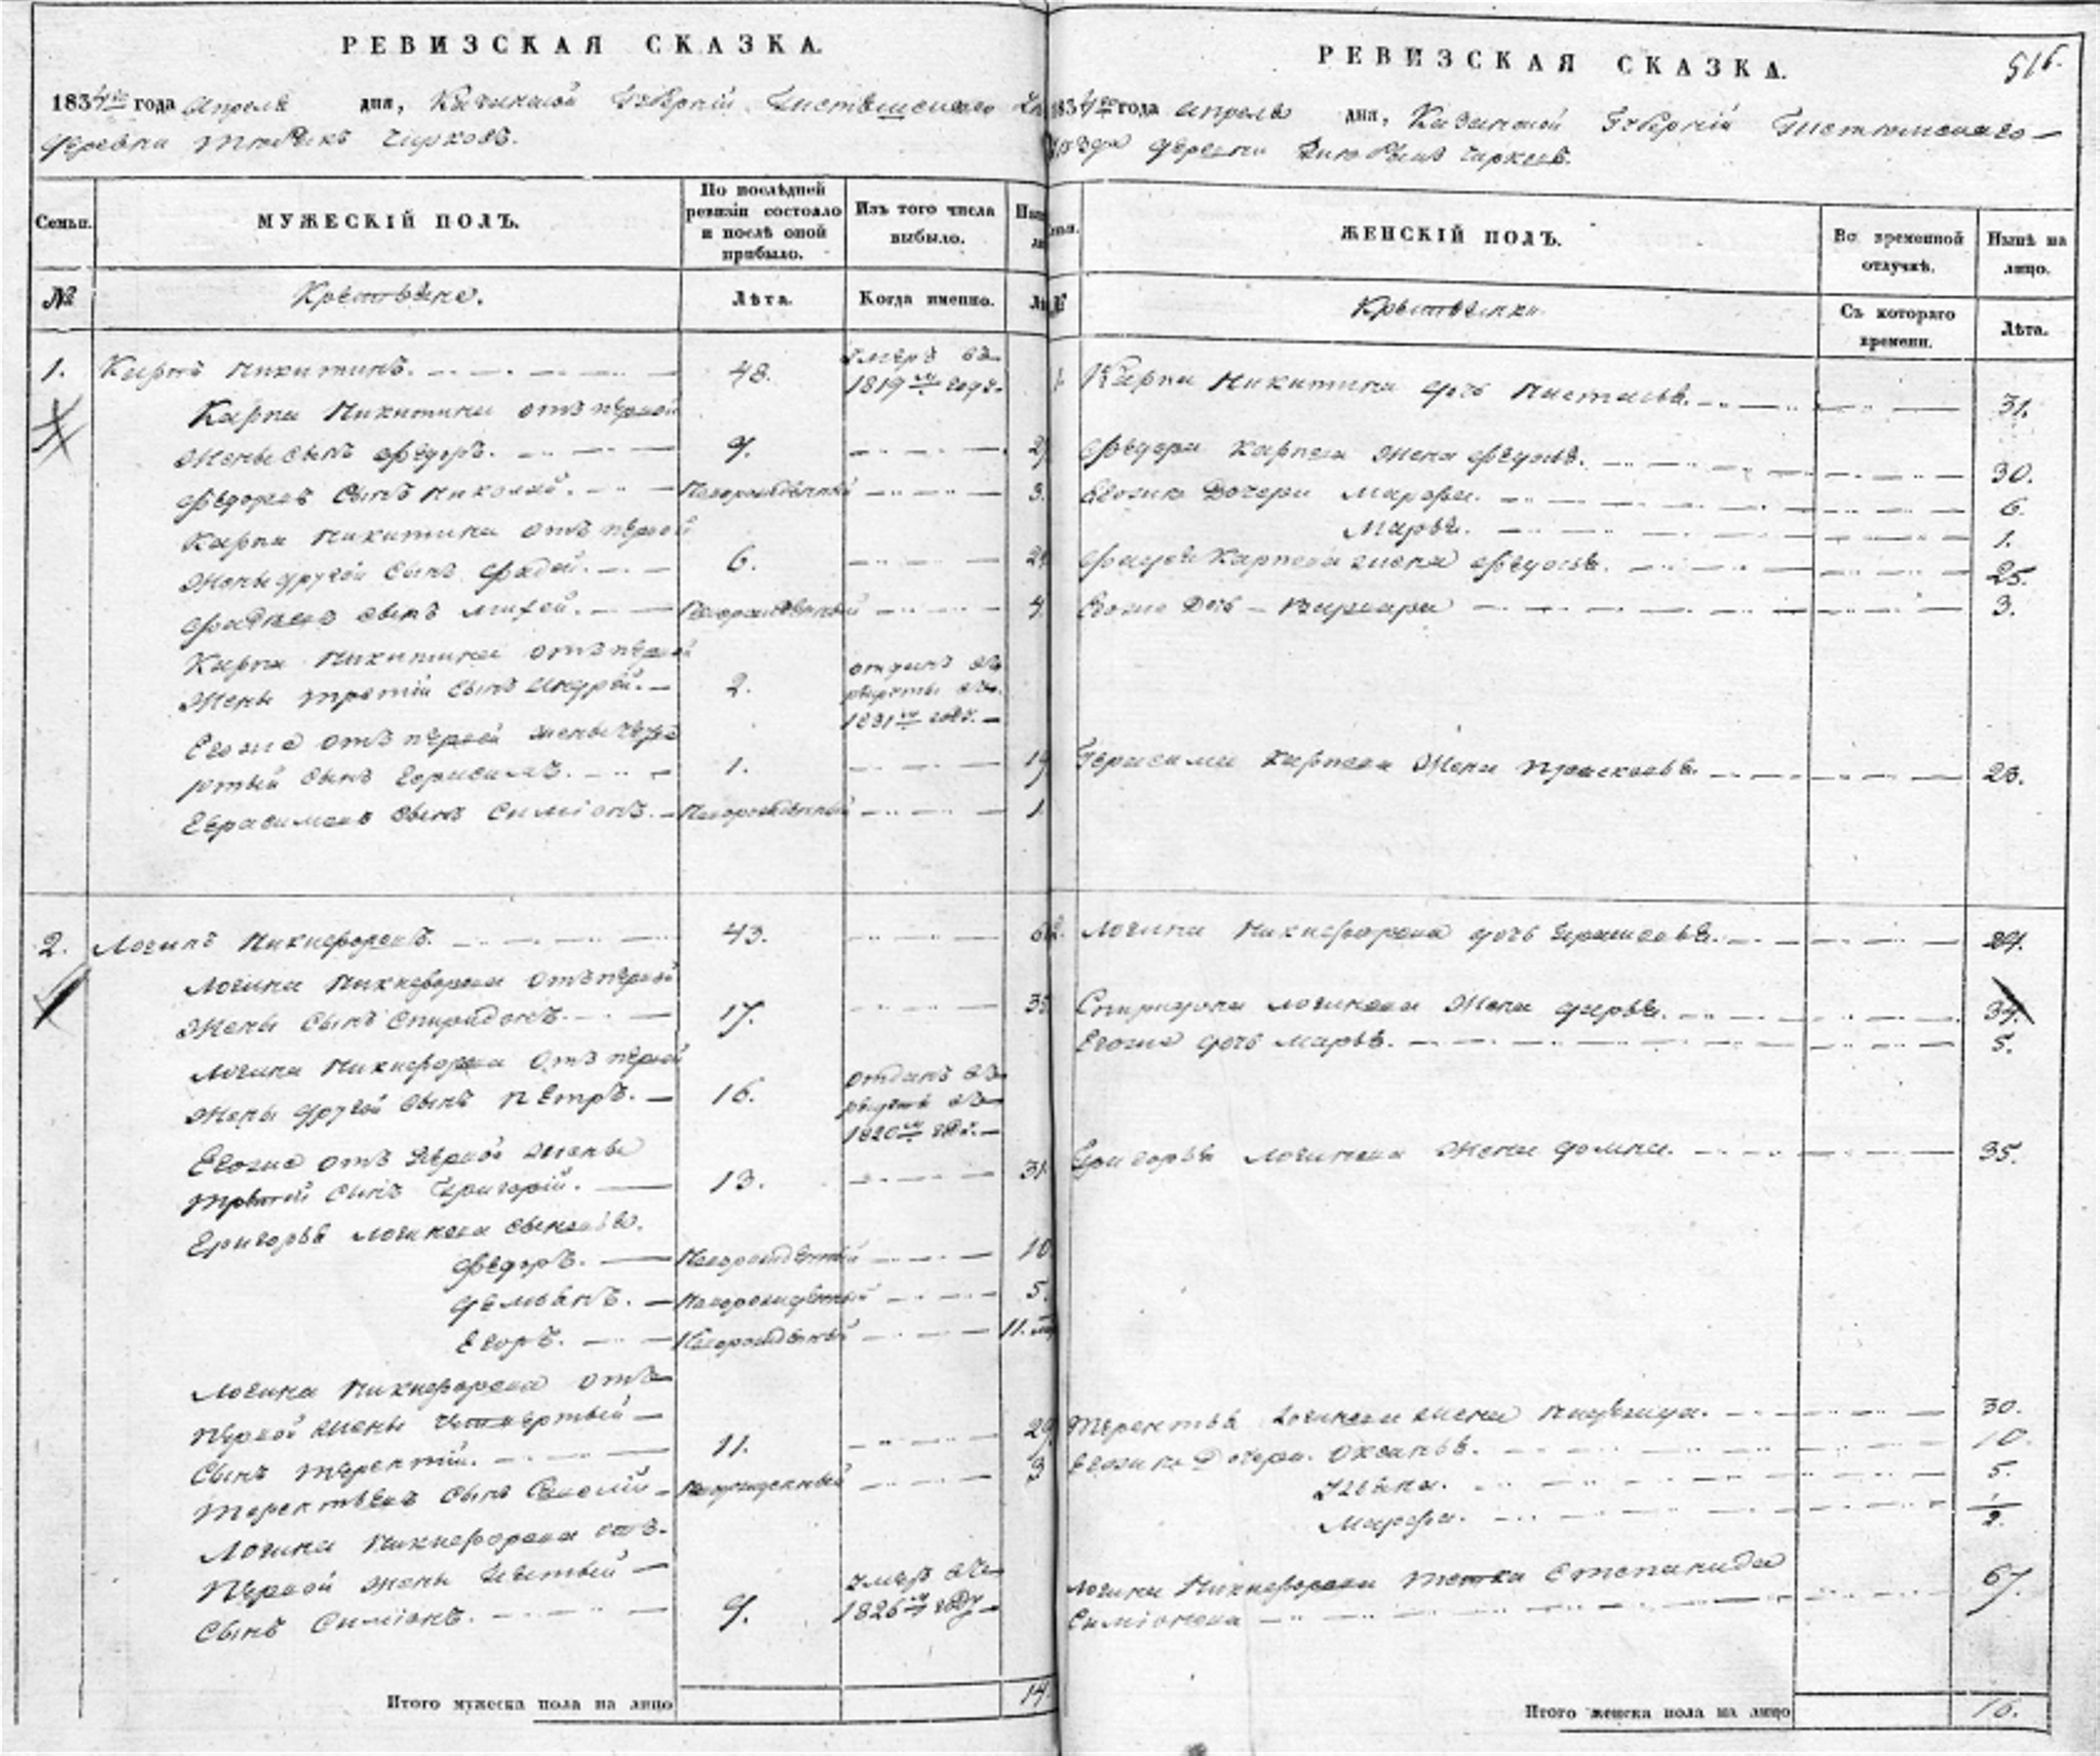 РЕВИЗСКАЯ СКАЗКА.
1834го года апреля дня, Казанской Губернiи
деревни Чирковъ.
Семьи.
МУЖЕСКIЙ ПОЛЪ.
По послѣдней ревизiи состояло и послѣ оной прибыло.
Изъ того числа выбыло.
№
Крестьяне.
Лѣта.
Когда именно.
1. Карпъ Никитинъ. 48. умеръ въ
1819м годѣ.
Карпа Никитина отъ первой
жены сынъ Федоръ. 9.
Федоровъ сынъ Николай. Новорожденный 3.
Карпа Никитина отъ первой
жены другой сынъ Фадей. 6.
Фадеевъ сынъ Новорожденный
Карпа Никитина отъ первой
жены третiй сынъ Андрей. 2. отданъ въ
рекруты въ
1831м годѣ.
Егоже отъ первой жены четве
ртый сынъ Герасимъ. 1.
Герасимовъ сынъ Симiонъ. Новорожденный 1
2. Логинъ Никифоровъ. 43.
Логина Никифорова отъ первой
жены сынъ Спиридонъ. 17.
Логина Никифорова отъ первой
жены другой сынъ Петръ. 16. отданъ въ
рекруты въ
1820м годѣ.
Егоже отъ первой жены
третiй сынъ Григорiй. 13. 31
Григорья Логинова сыновья.
Федоръ. Новорожденный 10
Демьянъ. Новорожденный 5.
Егоръ. Новорожденный 11.
Логина Никифорова отъ
первой жены четвертый
сынъ Терентiй. 11. 29
Терентьевъ сынъ Новорожденный 3
Логина Никифорова отъ
первой жены пятый
сынъ Симiонъ. 9. умеръ въ
1826м году
Итого мужеска пола на лицо 14
РЕВИЗСКАЯ СКАЗКА.
516.
1834го года апреля дня, Казанской Губернiи
деревни Чиркова.
ЖЕНСКIЙ ПОЛЪ.
Во временной отлучкѣ.
Нынѣ на лицо.
Крестьянки
Съ котораго времени.
Лѣта.
Карпа Никитина дочь Настасья. 31.
Федора Карпова жена Федосья. 30.
Егоже дочери Марфа. 6.
Марья. 1.
Фадея Карпова жена Федосья. 25.
Егоже дочь Варвара 3.
Герасима Карпова жена Прасковья. 23.
Логина Никифорова дочь
Спиридона Логинова жена Дарья. 34.
Егоже дочь Марья. 5.
Григорья Логинова жена Домна. 35.
Терентья Логинова жена 30.
Егоже дочери. Оксинья. 10.
Ульяна. 5.
Марфа. 1/2.
Логина Никифорова тетка Степанида
Симiонова 67.
Итого женска пола на лицо 16.